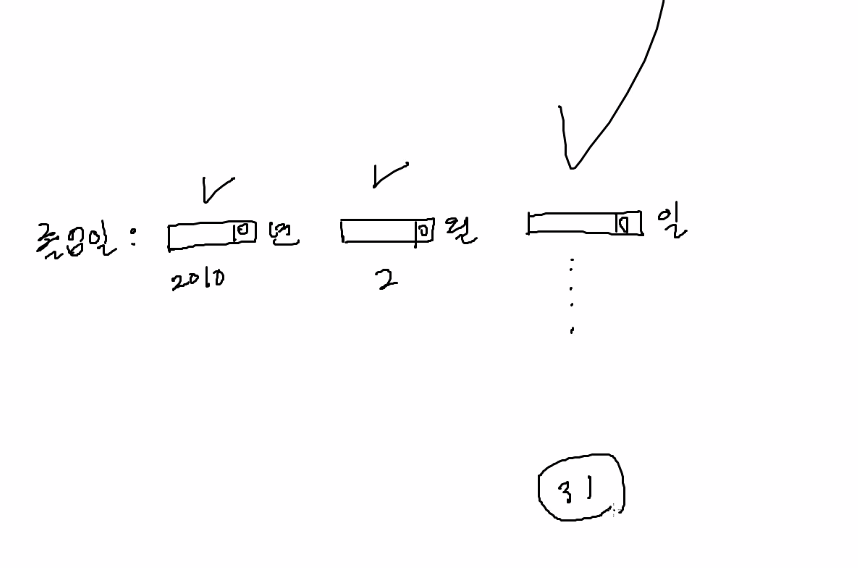 졸업일 : 년 월 일
2010 2
31